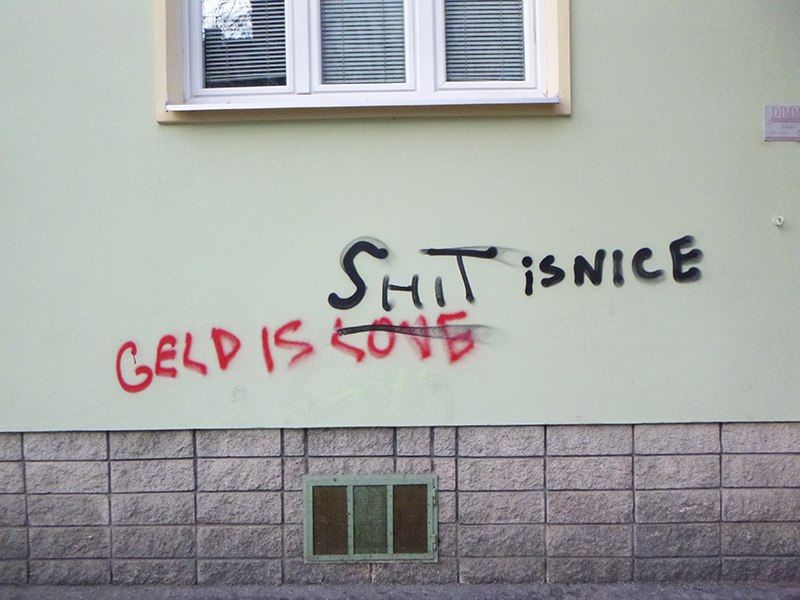 SHIT isNICE
GELD IS LOVE